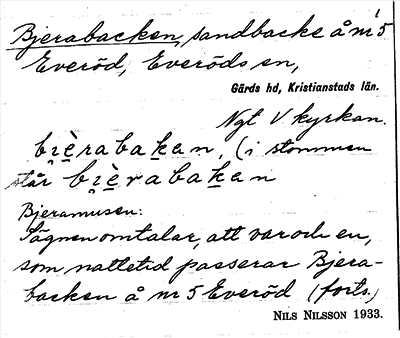 Bjerabacken, sandbacke å nr 5
Everöd, Everöds sn,
Gärds hd, Kristianstads län.
Ngt V kyrkan.
bi̯èrabaken, (i stommen
står bi̯èrabaken
Bjeramusen:
Sägnen omtalar, att var och en,
som nattetid passerar Bjera-
backen å nr 5 Everöd (forts.)
NILS NILSSON 1933.